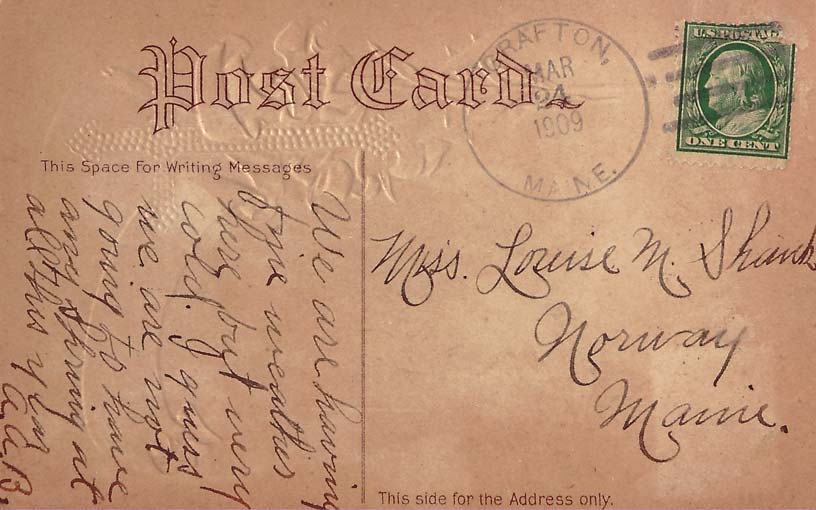 Post Card
GRAFTON,
MAR
24
1909
MAINE.
U.S. POSTAGE
ONE CENT
This Space For Writing Messages
We are having
fine weather
here but very
cold. I guess
we are not
going to have
any Spring at
all this year
A.A.B.
Miss. Louise M.
Norway
Maine.
This side for the Address only.